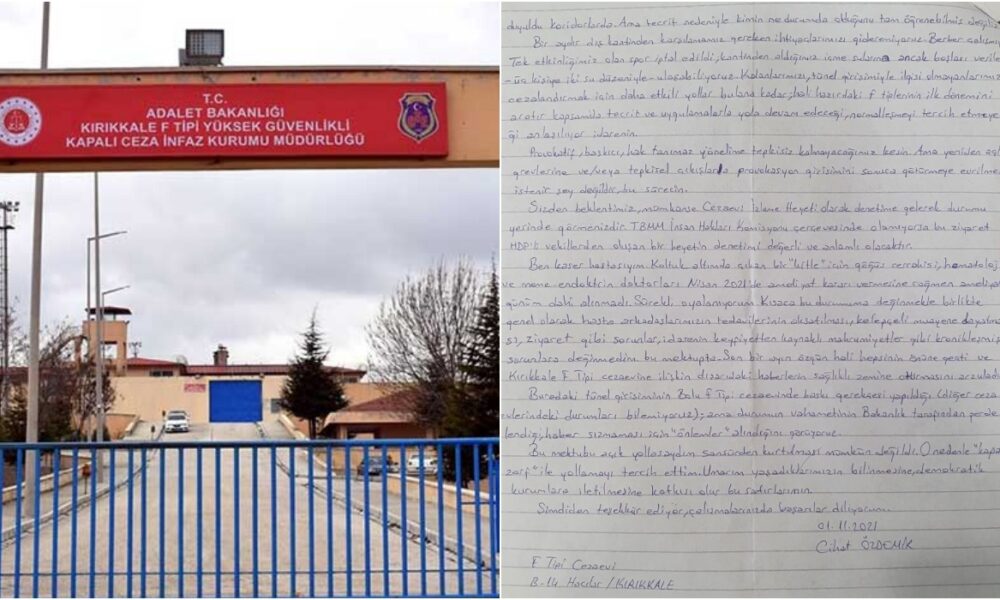 T.C.
ADALET BAKANLIĞI
KIRIKKALE F TİPİ YÜKSEK GÜVENLİKLİ
KAPALI CEZA İNFAZ KURUMU MÜDÜRLÜĞÜ
duyuldu koridorlarda. Ama tecrit nedeniyle kimin ne durumda olduğunu tam öğrenebilmiş değiliz
Bir aydır dış kantinden karşılamamız gereken ihtiyaçlarımızı gideremiyoruz. Berber çalışmıy
Tek etkinliğimiz olan spor iptal edildi, kantinden aldığımız içme suyuna ancak boşları verile
-üç kişiye iki su düzeniyle- ulaşabiliyoruz. Kalanlarımızı, tünel girişimiyle ilgisi olmayanlarımız
cezalandırmak için daha etkili yollar bulana kadar, hali hazırdaki F tiplerinin ilk dönemini
aratır kapsamda tecrit ve uygulamalarla yola devam edeceği, normalleşmeyi tercih etmeye
ği anlaşılıyor idarenin.
Provokatif, baskıcı, hak tanımaz yönelime tepkisiz kalmayacağımız kesin. Ama yeniden açl
grevlerine ve/veya tepkisel çıkışlarla provokasyon girişimini sonuca götürmeye evrilme
istenir şey değildir, bu sürecin.
Sizden beklentimiz, mümkünse Cezaevi İzleme Heyeti olarak denetime gelerek durumu
yerinde görmenizdir. TBMM İnsan Hakları Komisyonu çerçevesinde olamıyorsa bu ziyaret
HDP'li vekillerden oluşan bir heyetin denetimi değerli ve anlamlı olacaktır.
Ben kanser hastasıyım. Koltuk altımda çıkan bir "kitle" için göğüs cerrahisi, hematoloj
ve meme endoktrin doktorları Nisan 2021'de ameliyat kararı vermesine rağmen ameliyat
günüm dahi alınmadı. Sürekli oyalanıyorum. Kısaca bu durumuma değinmekle birlikte
genel olarak hasta arkadaşlarımızın tedavilerinin aksatılması, kelepçeli muayene dayatma
sı, ziyaret gibi sorunlar, idarenin keyfiyetten kaynaklı mahrumiyetler gibi kronikleşmiş
sorunlara değinmedim bu mektupta. Son bir ayın özgün hali hepsinin önüne geçti ve
Kırıkkale F Tipi cezaevine ilişkin dışarıdaki haberlerin sağlıklı zemine oturmasını arzuladı
Buradaki tünel girişiminin Bolu F Tipi cezaevinde baskı gerekçesi yapıldığı (diğer ceza
evlerindeki durumları bilemiyoruz); ama durumun vahametinin Bakanlık tarafından perde
lendiği, haber sızmaması için "önlemler" alındığını görüyoruz.
Bu mektubu açık yollasaydım sansürden kurtulması mümkün değildi. O nedenle "kapa
zarf" ile yollamayı tercih ettim. Umarım yaşadıklarımızın bilinmesine, demokratik
kurumlara iletilmesine katkısı olur bu satırlarımın.
Şimdiden teşekkür ediyor, çalışmalarınızda başarılar diliyorum.
01.11.2021
Cihat ÖZDEMİR
F Tipi Cezaevi
B-14 Hacılar/KIRIKKALE